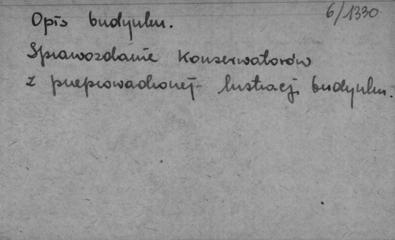 6/1330
Opis budynku.
Sprawozdanie Konserwatorów
z przeprowadzonej lustracji budynku.